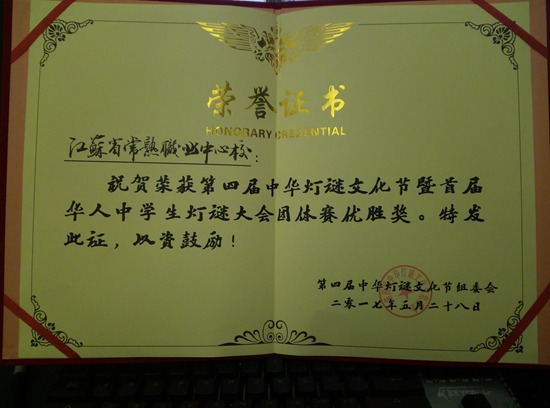 荣誉证书
HONORARY CREDENTIAL
江蘇省常熟職业中心校：
祝贺荣获第四届中华灯谜文化节暨首届
华人中学生灯谜大会团体赛优胜奖。特发
此证，以资鼓励！
第四届中华灯谜文化节组委会
二零一七年五月二十八日